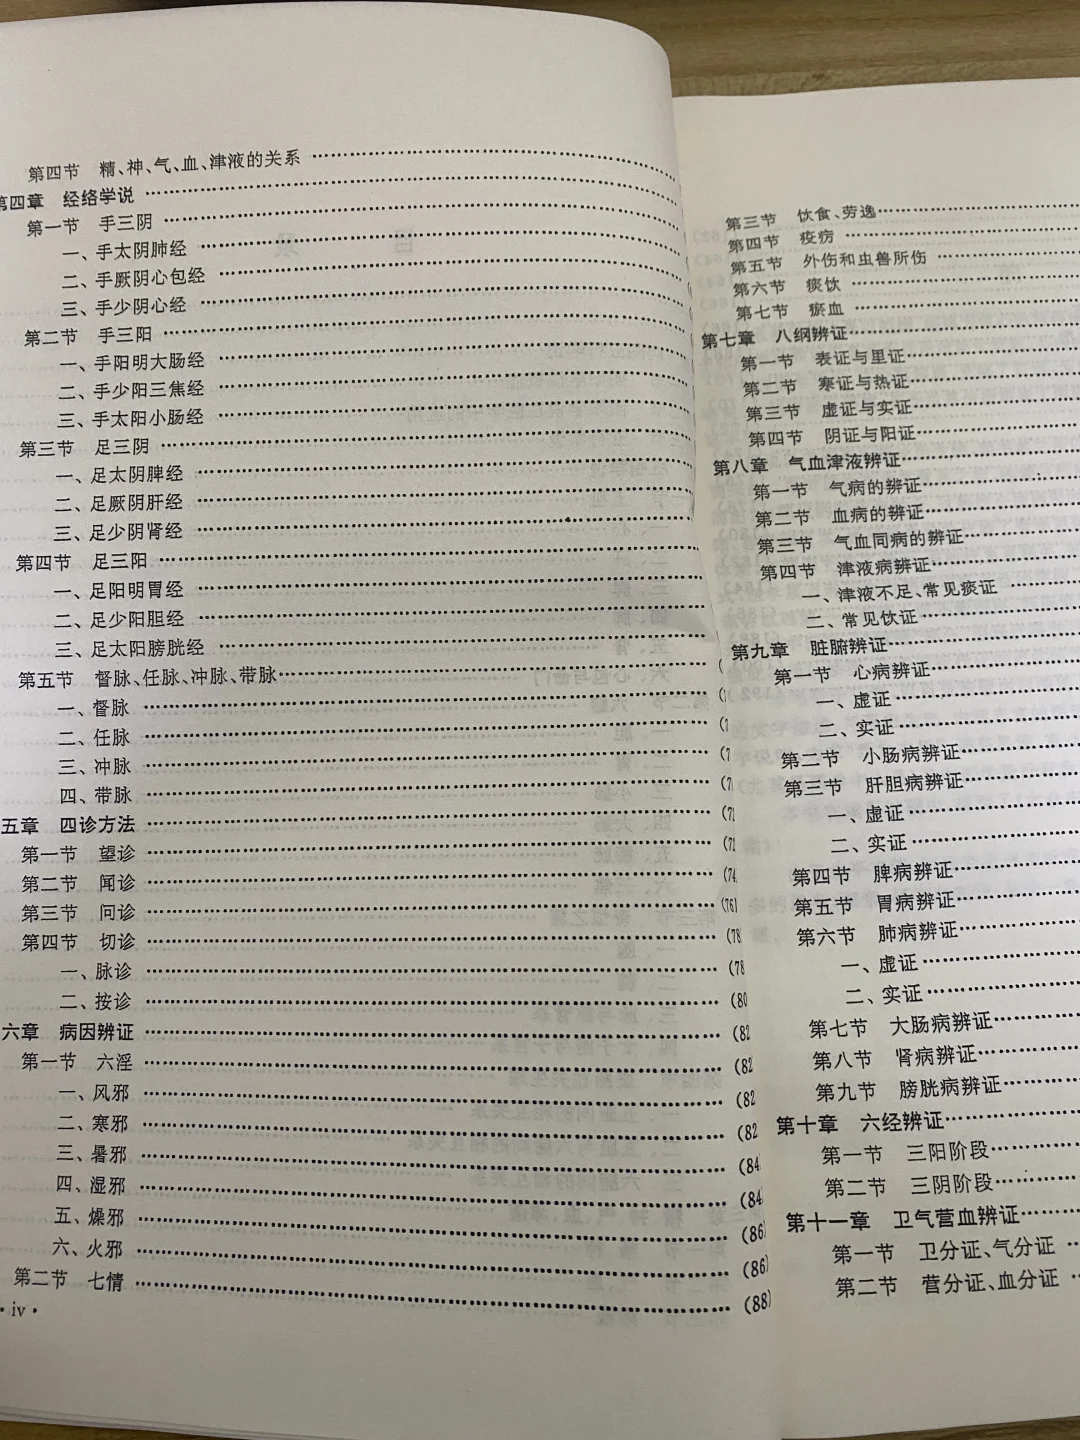 第四节 精、神、气、血、津液的关系
第四章 经络学说
第一节 手三阴
一、手太阴肺经
二、手厥阴心包经
三、手少阴心经
第二节 手三阳
一、手阳明大肠经
二、手少阳三焦经
三、手太阳小肠经
第三节 足三阴
一、足太阴脾经
二、足厥阴肝经
三、足少阴肾经
第四节 足三阳
一、足阳明胃经
二、足少阳胆经
三、足太阳膀胱经
第五节 督脉、任脉、冲脉、带脉
一、督脉
二、任脉
三、冲脉
四、带脉
五章 四诊方法
第一节 望诊
第二节 闻诊
第三节 问诊 (76)
第四节 切诊 (78
一、脉诊 (78
二、按诊 (80
六章 病因辨证 (82
第一节 六淫 (82
一、风邪 (82
二、寒邪 (82
三、暑邪 (84
四、湿邪 (84
五、燥邪 (86)
六、火邪 (86)
第二节 七情 (88)
· iv ·
第三节 饮食、劳逸
第四节 疫疠
第五节 外伤和虫兽所伤
第六节 痰饮
第七节 瘀血
第七章 八纲辨证
第一节 表证与里证
第二节 寒证与热证
第三节 虚证与实证
第四节 阴证与阳证
第八章 气血津液辨证
第一节 气病的辨证
第二节 血病的辨证
第三节 气血同病的辨证
第四节 津液病辨证
一、津液不足、常见痰证
二、常见饮证
第九章 脏腑辨证
第一节 心病辨证
一、虚证
二、实证
第二节 小肠病辨证
第三节 肝胆病辨证
一、虚证
二、实证
第四节 脾病辨证
第五节 胃病辨证
第六节 肺病辨证
一、虚证
二、实证
第七节 大肠病辨证
第八节 肾病辨证
第九节 膀胱病辨证
第十章 六经辨证
第一节 三阳阶段
第二节 三阴阶段
第十一章 卫气营血辨证
第一节 卫分证、气分证
第二节 营分证、血分证